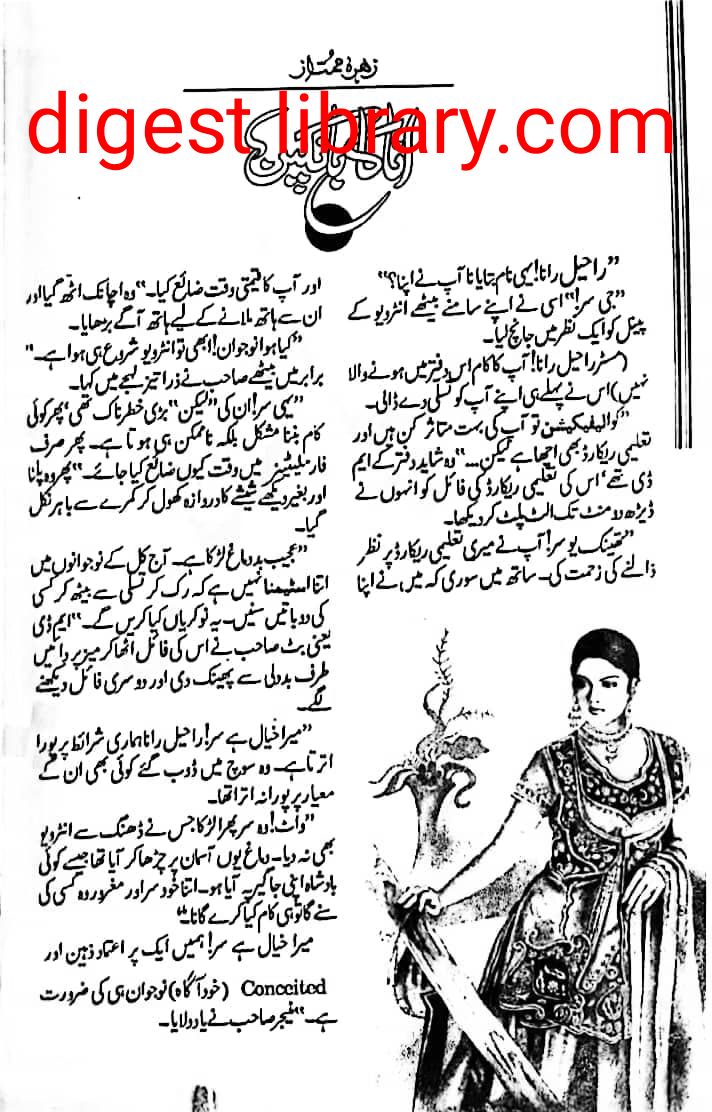 زہرہ ممتاز
digest library.com
انا کا بانکپن
”راحیل رانا! یہی نام بتایا نا آپ نے اپنا؟“
”جی سر!“ اسی نے اپنے سامنے بیٹھے انٹرویو کے
پینل کو ایک نظر میں جانچ لیا۔
(مسٹر راحیل رانا! آپ کا کام اس دفتر میں ہونے والا
نہیں) اس نے پہلے ہی اپنے آپ کو تسلی دے ڈالی۔
”کوالیفیکیشن تو آپ کی بہت متاثر کن ہیں اور
تعلیمی ریکارڈ بھی اچھا ہے لیکن...“ وہ شاید دفتر کے ایم
ڈی تھے، اس کی تعلیمی ریکارڈ کی فائل کو انہوں نے
ڈیڑھ دو منٹ تک الٹ پلٹ کر دیکھا۔
”تھینک یو سر! آپ نے میری تعلیمی ریکارڈ پر نظر
ڈالنے کی زحمت کی۔ ساتھ میں سوری کہ میں نے اپنا
اور آپ کا قیمتی وقت ضائع کیا۔“ وہ اچانک اٹھ گیا اور
ان سے ہاتھ ملانے کے لیے ہاتھ آگے بڑھایا۔
”کیا ہوا نوجوان! ابھی تو انٹرویو شروع ہی ہوا ہے۔“
برابر میں بیٹھے صاحب نے ذرا تیز لہجے میں کہا۔
”یہی سر! ان کی ”لیکن“ بڑی خطرناک تھی، پھر کوئی
کام بننا مشکل بلکہ ناممکن ہی ہوتا ہے۔ پھر صرف
فارملیٹیز میں وقت کیوں ضائع کیا جائے۔“ پھر وہ پلٹا
اور بغیر دیکھے شیشے کا دروازہ کھول کر کمرے سے باہر نکل
گیا۔
”عجیب بد دماغ لڑکا ہے۔ آج کل کے نوجوانوں میں
اتنا اسٹیمنا نہیں ہے کہ رک کر تسلی سے بیٹھ کر کسی
کی دو باتیں سنیں۔ یہ نوکریاں کیا کریں گے۔“ ایم ڈی
یعنی بٹ صاحب نے اس کی فائل اٹھا کر میز پر دائیں
طرف بددلی سے پھینک دی اور دوسری فائل دیکھنے
لگے۔
”میرا خیال ہے سر! راحیل رانا ہماری شرائط پر پورا
اترتا ہے۔ وہ سوچ میں ڈوب گئے کوئی بھی ان کے
معیار پر پورا نہ اترا تھا۔
”واٹ! وہ سر پھرا لڑکا جس نے ڈھنگ سے انٹرویو
بھی نہ دیا۔ دماغ یوں آسمان پر چڑھا کر آیا تھا جیسے کوئی
بادشاہ اپنی جاگیر پہ آیا ہو۔ اتنا خود سر اور مغرور وہ کسی کی
سنے گا تو ہی کام کیا کرے گا نا۔“
میرا خیال ہے سر! ہمیں ایک پر اعتماد ذہین اور
Conceited (خود آگاہ) نوجوان ہی کی ضرورت
ہے۔“ منیجر صاحب نے یاد دلایا۔